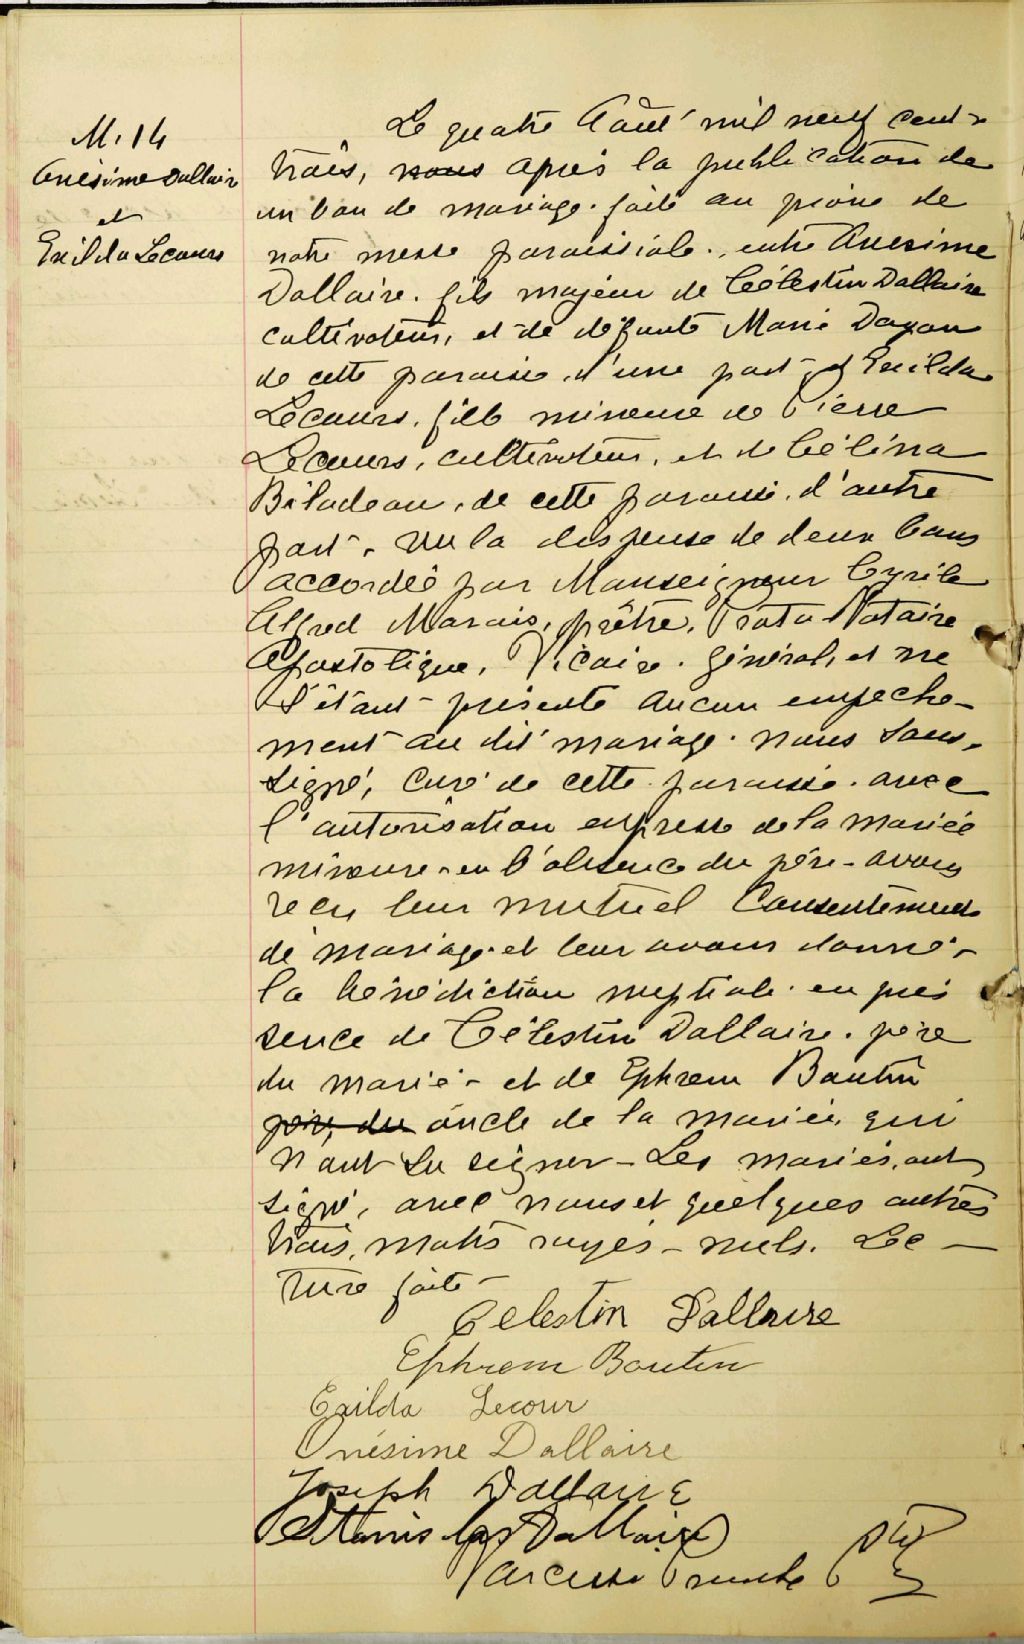 M. 14
Onésime Dallaire
et
Exilda Lecours
Le quatre Août mil neuf cent
trois, nous après la publication de
un ban de mariage faite au prône de
notre messe paroissiale, entre Onesime
Dallaire, fils majeur de Célestin Dallaire
cultivateur, et de défunte Marie Doyon
de cette paroisse d'une part, et Exilda
Lecours, fille mineure de Pierre
Lecours, cultivateur, et de Célina
Bilodeau, de cette paroisse, d'autre
part, vu la dispense de deux bans
accordée par Monseigneur Cyrille
Alfred Marois, prêtre, Proto Notaire
Apostolique, Vicaire général, et ne
s'étant présenté aucun empêche-
ment au dit mariage, nous sous-
signé, Curé de cette paroisse, avec
l'autorisation expresse de la mariée
mineure, en l'absence du père, avons
reçu leur mutuel Consentement
de mariage et leur avons donné
la bénédiction nuptiale en pré
sence de Célestin Dallaire, père
du marié, et de Ephrem Boutin
père, du oncle de la mariée, qui
n'ont su signer - Les mariés, ont
signé, avec nous et quelques autres
trois, mots rayés - nuls. Lec -
ture faite -
Celestin Dallaire
Ephrem Boutin
Exilda Lecour
Onésime Dallaire
Joseph Dallaire
Stanislas Dallaire
Narcisse Proulx Ptre